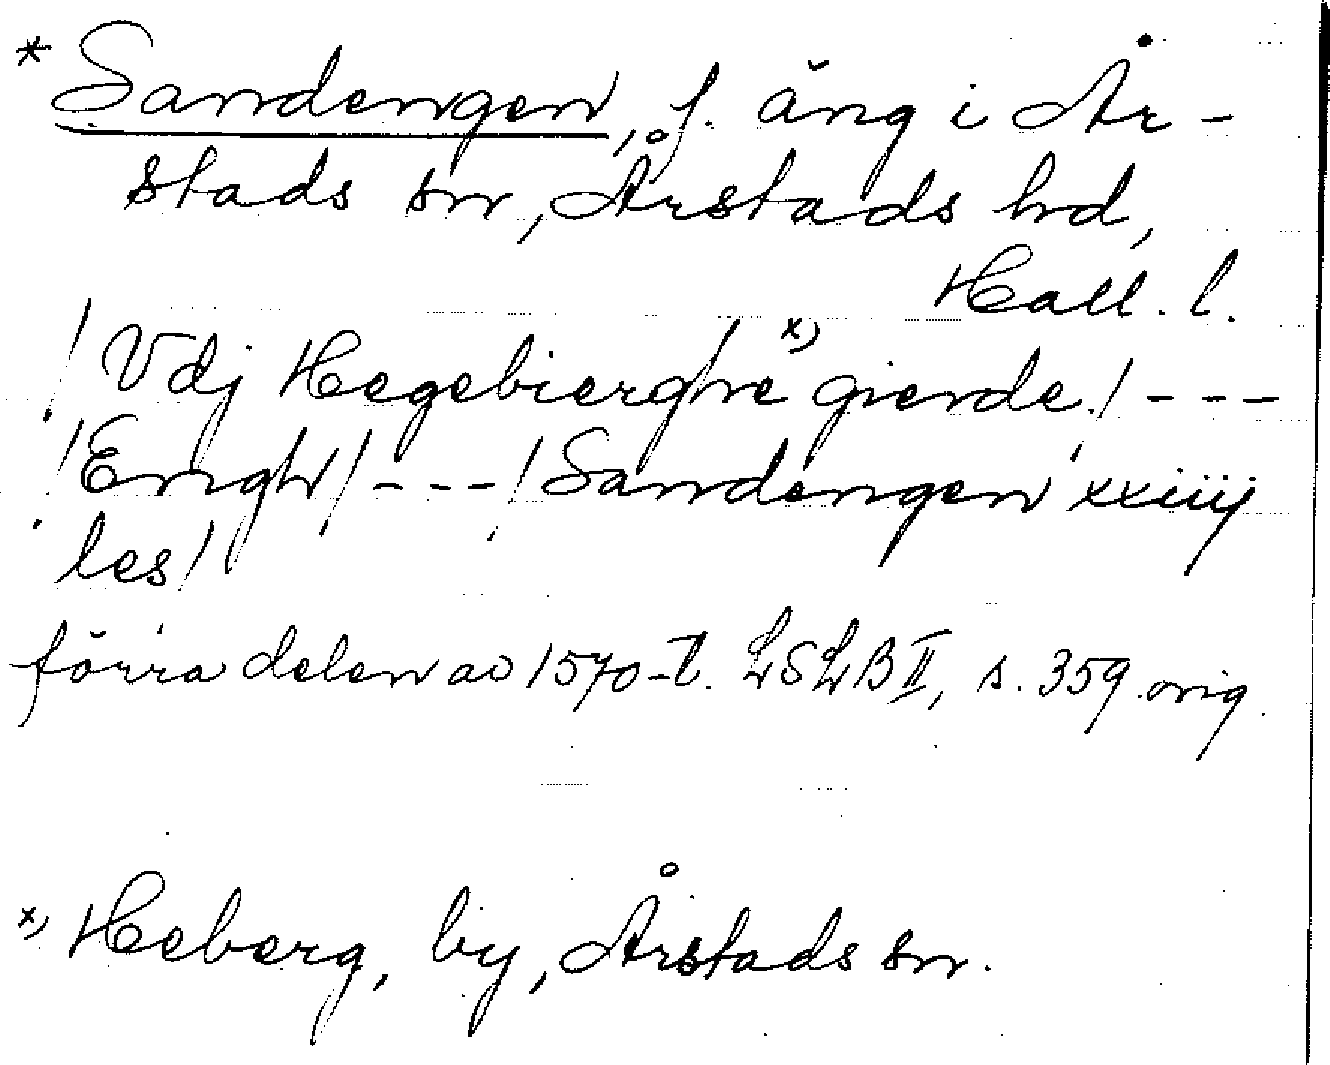 * Sandengen, f. äng i År-
stads sn, Årstads hd,
Hall. l.
/ Vdj Hegebierghe x) gierde / ---
/ Engh / --- / Sandengen xxiiij
les /
förra delen av 1570-t. LSLB II, s. 359 orig.
x) Heberg, by, Årstads sn.